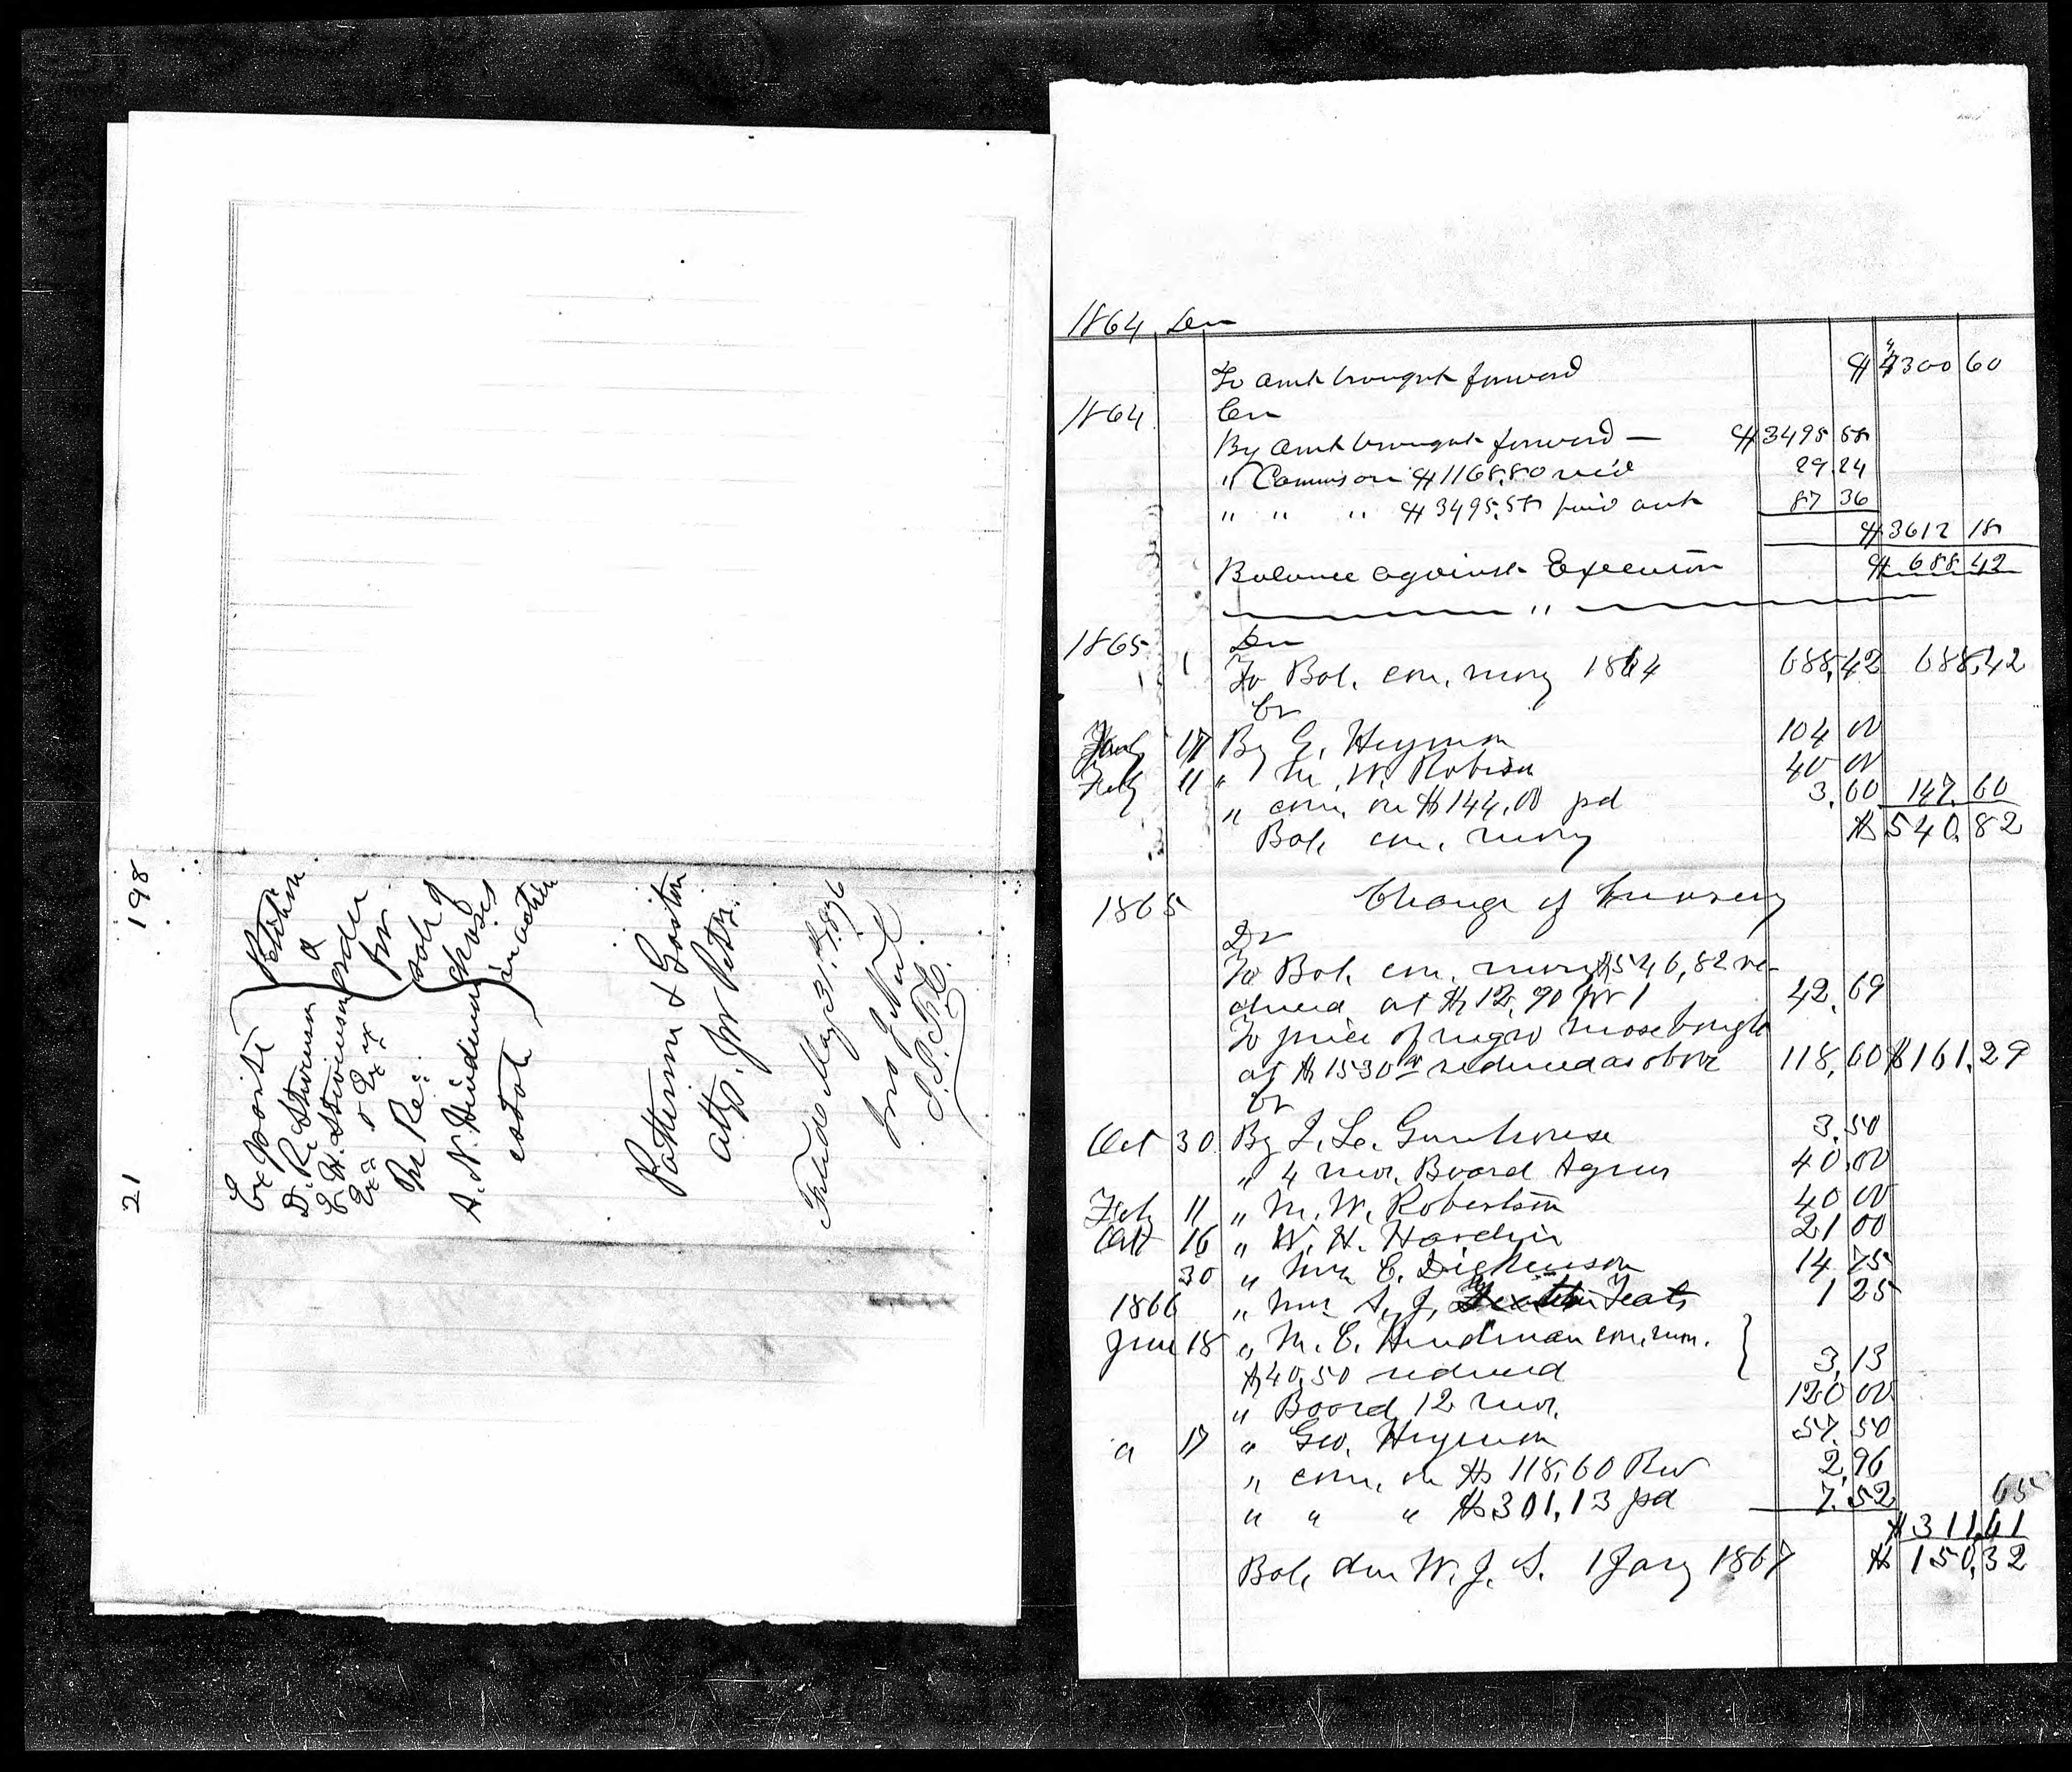 198
21
Ex parte
D. R. Stevenson
E. H. Stevenson
Exs & Exx
In Re:
A. N. Hindman
estate
Petition
&
order
for
sale of
choses
in action
Patterson & Gaston
attys. for Petrs.
Filed May 31st 1876
Jno J Neil
J.P.F.C.
1864 Dr
To amt brought forward $4300 60
1864 Cr
By amt brought forward — $3495 58
" Commison $1168.80 rec'd 29.24
" " " $3495.58 paid out 87 36
$3612 18
Balance against Executor $688 42
"
1865 Dr
1 To Bal. con. mony 1864 688,42 688,42
Cr
Jany 17 By G. Heyman 104 00
Feby 11 " M. W. Robison 40 00
" com. on $144,00 pd 3,60 147,60
Bal. con. mony $540.82
1865 Change of Currency
Dr
To Bal. con. mony $540,82 re-
duced at $12,90 for 1 42,69
To price of negro Mose bought
at $1530 00 reduced as above 118,60 $161.29
Cr
Oct 30 By J. L. Gunhouse 3.50
" 4 mos. Board Agnes 40,00
Feb 11 " M. W. Robertson 40 00
Oct 16 " W. H. Hardin 21 00
30 " Mrs C. Dickenson 14 75
1866 " Mrs A. J. Teats 1 25
June 18 " M. C. Hindman con. mon. }
$40,50 reduced 3,13
" Board 12 mos. 120 00
a 17 " Geo. Heyman 57.50
" com. on $118,60 Rec 2,96
" " " $301,13 pd 7.52
65
$311,61
Bal. due W. J. S. 1 Jany 1867 $150,32